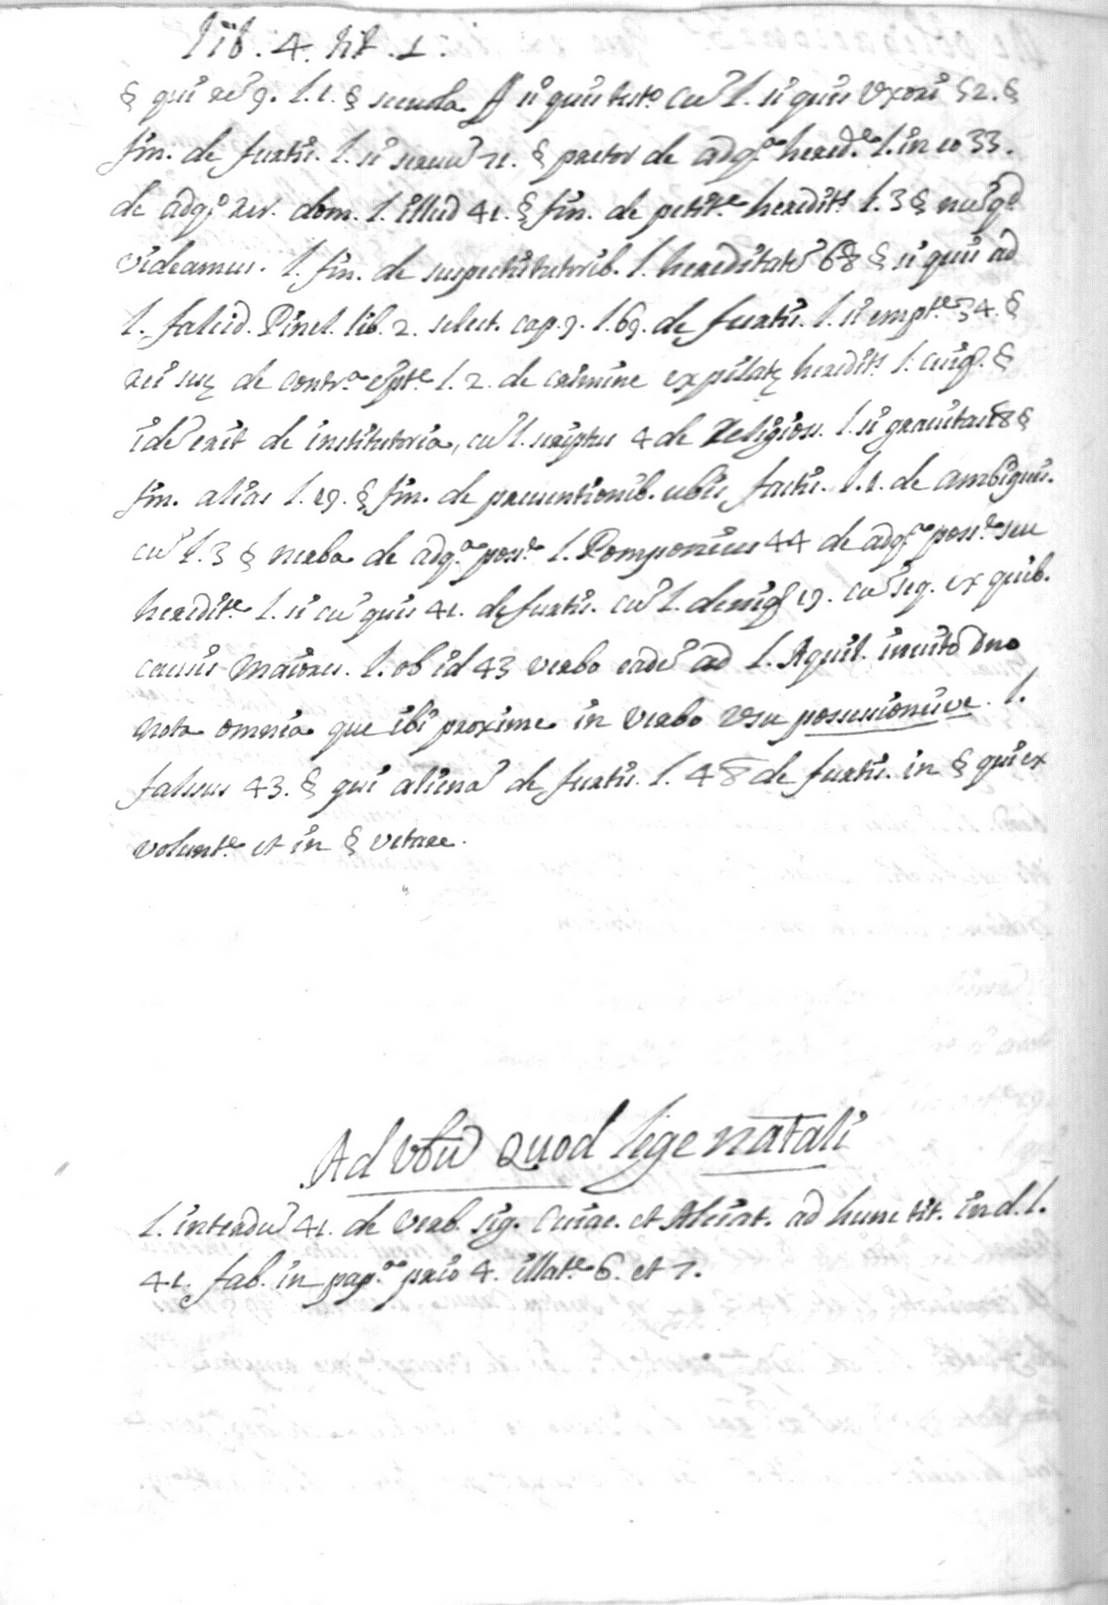 lib. 4. tit. 1.
§ qui re' 9. l. 1. § scevola ff si quis test.º cu' l. si quis vxori 52. §
fin. de furtis. l. si servu' 71. § praetor de adq.ª hered.e l. in eo 33.
de adq.º rer. dom. l. illud 41. § fin. de petit.e heredit.s l. 3 § nu'q'
videamus. l. fin. de suspectis tutorib. l. hereditate' 68 § si quis ad
l. falcid. Pinel. lib. 2. select. cap. 9. l. 69. de furtis. l. si empt.e 34. §
rei suę de contr.ª e'pt.e l. 2. de crimine expilatę heredit.s l. cuiq. §
ide' erit de institutoria, cu' l. scriptus 4 de Religios. l. si gravitas 8 §
fin. alias l. 19. § fin. de verbis factis. l. 1. de ambiguis.
cu' l. 3 § verba de adq.ª poss.e l. Pomponius 44 de adq.ª poss.e seu
heredit.e l. si cu' quis 41. de furtis. cu' l. deniq 19. cu' seq. ex quib.
causis maiores. l. ob id 43 verbo eade' ad l. Aquil. invito dno
nota omnia que ibi proxime in verbo vsu possessionisve. l.
falsus 43. § qui aliena' de furtis. l. 48 de furtis. in § qui ex
volunt.e et in § vetare.
Ad vbu' quod lege natali
l. interdu' 41. de verb. sig. Cuiac. et Alciat. ad hunc tit. in d. l.
41. fab. in pap.º prio 4. illat.e 6. et 7.